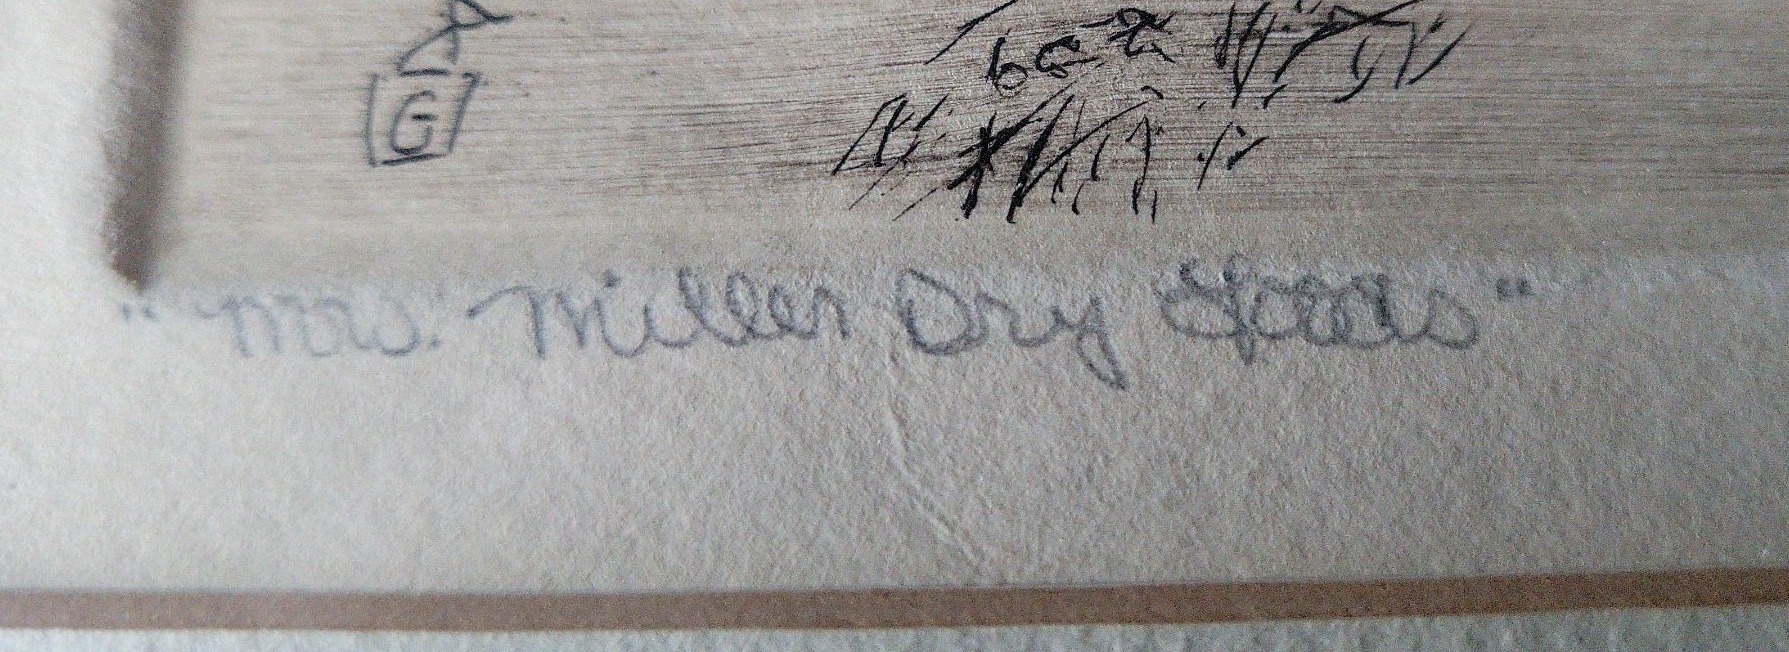 G
"Mrs. Miller Dry Goods"